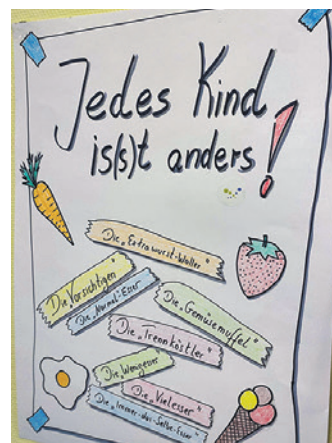 Jedes Kind
is(s)t anders!
Die „Extrawurst-Woller"
Die „Vorsichtigen"
Die „Normal"-Esser
Die „Gemüsemuffel"
Die „Trennköstler"
Die „Wenigesser"
Die „Vielesser"
Die „Immer-das-Selbe-Esser"